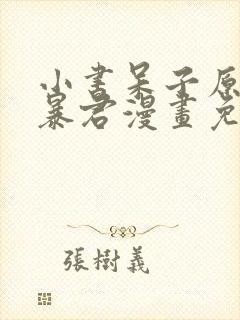 小書呆子原
暴君漫畫免
張樹義